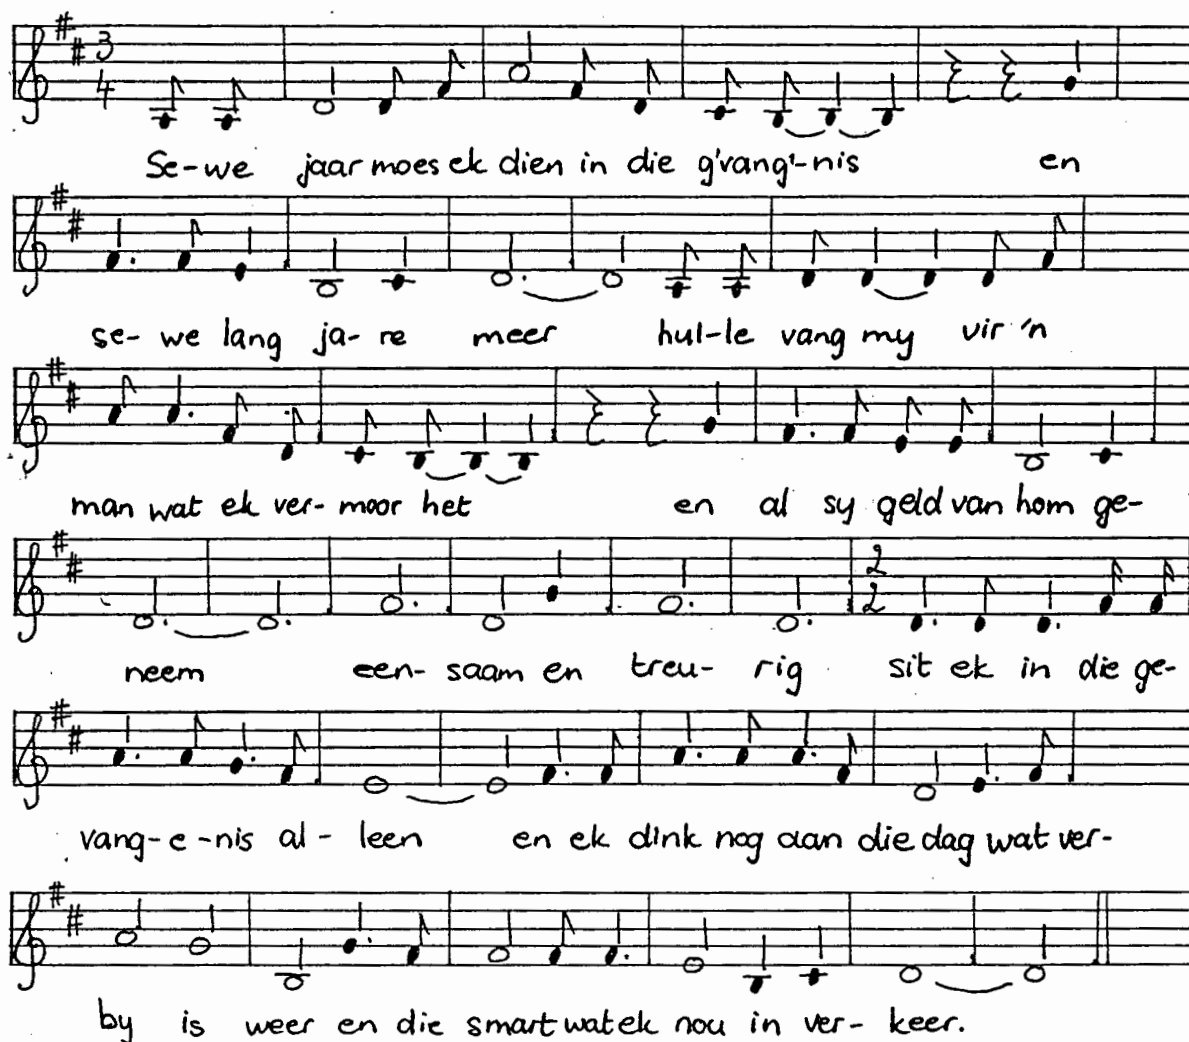 3
4
Se-we jaar moes ek dien in die g'vang'-nis en
se- we lang ja- re meer hul-le vang my vir 'n
man wat ek ver- moor het en al sy geld van hom ge-
2
2
neem een- saam en treu- rig sit ek in die ge-
vang-e-nis al- leen en ek dink nog aan die dag wat ver-
by is weer en die smart wat ek nou in ver- keer.